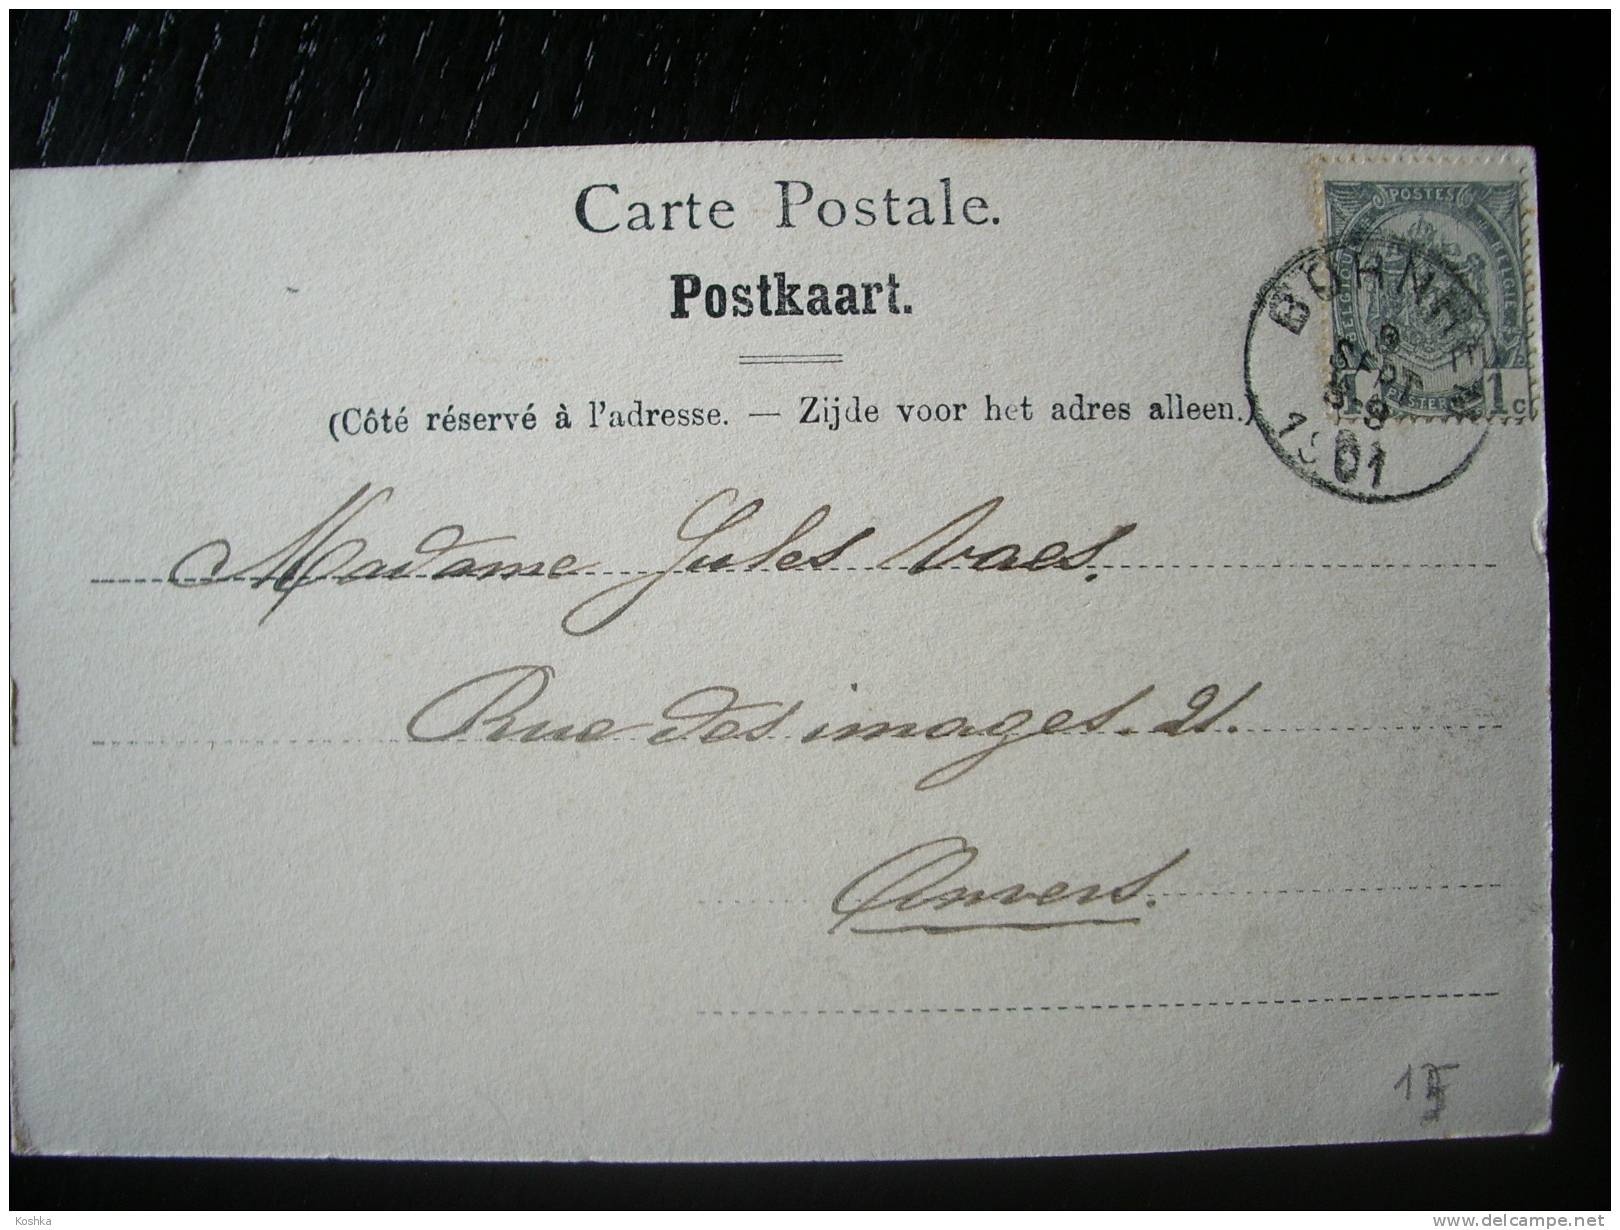 Carte Postale.
Postkaart.
(Côté réservé à l'adresse. — Zijde voor het adres alleen.)
POSTES
BELGIQUE
BELGIE
1c
BORNHEM
9
SEPT
1901
Madame Jules Vaes.
Rue des images. 21.
Anvers.
Koshka
www.delcampe.net